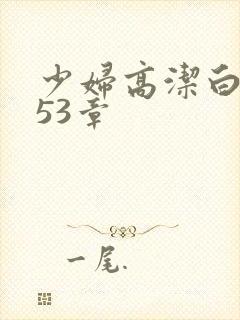 少婦高潔白
53章
一尾.